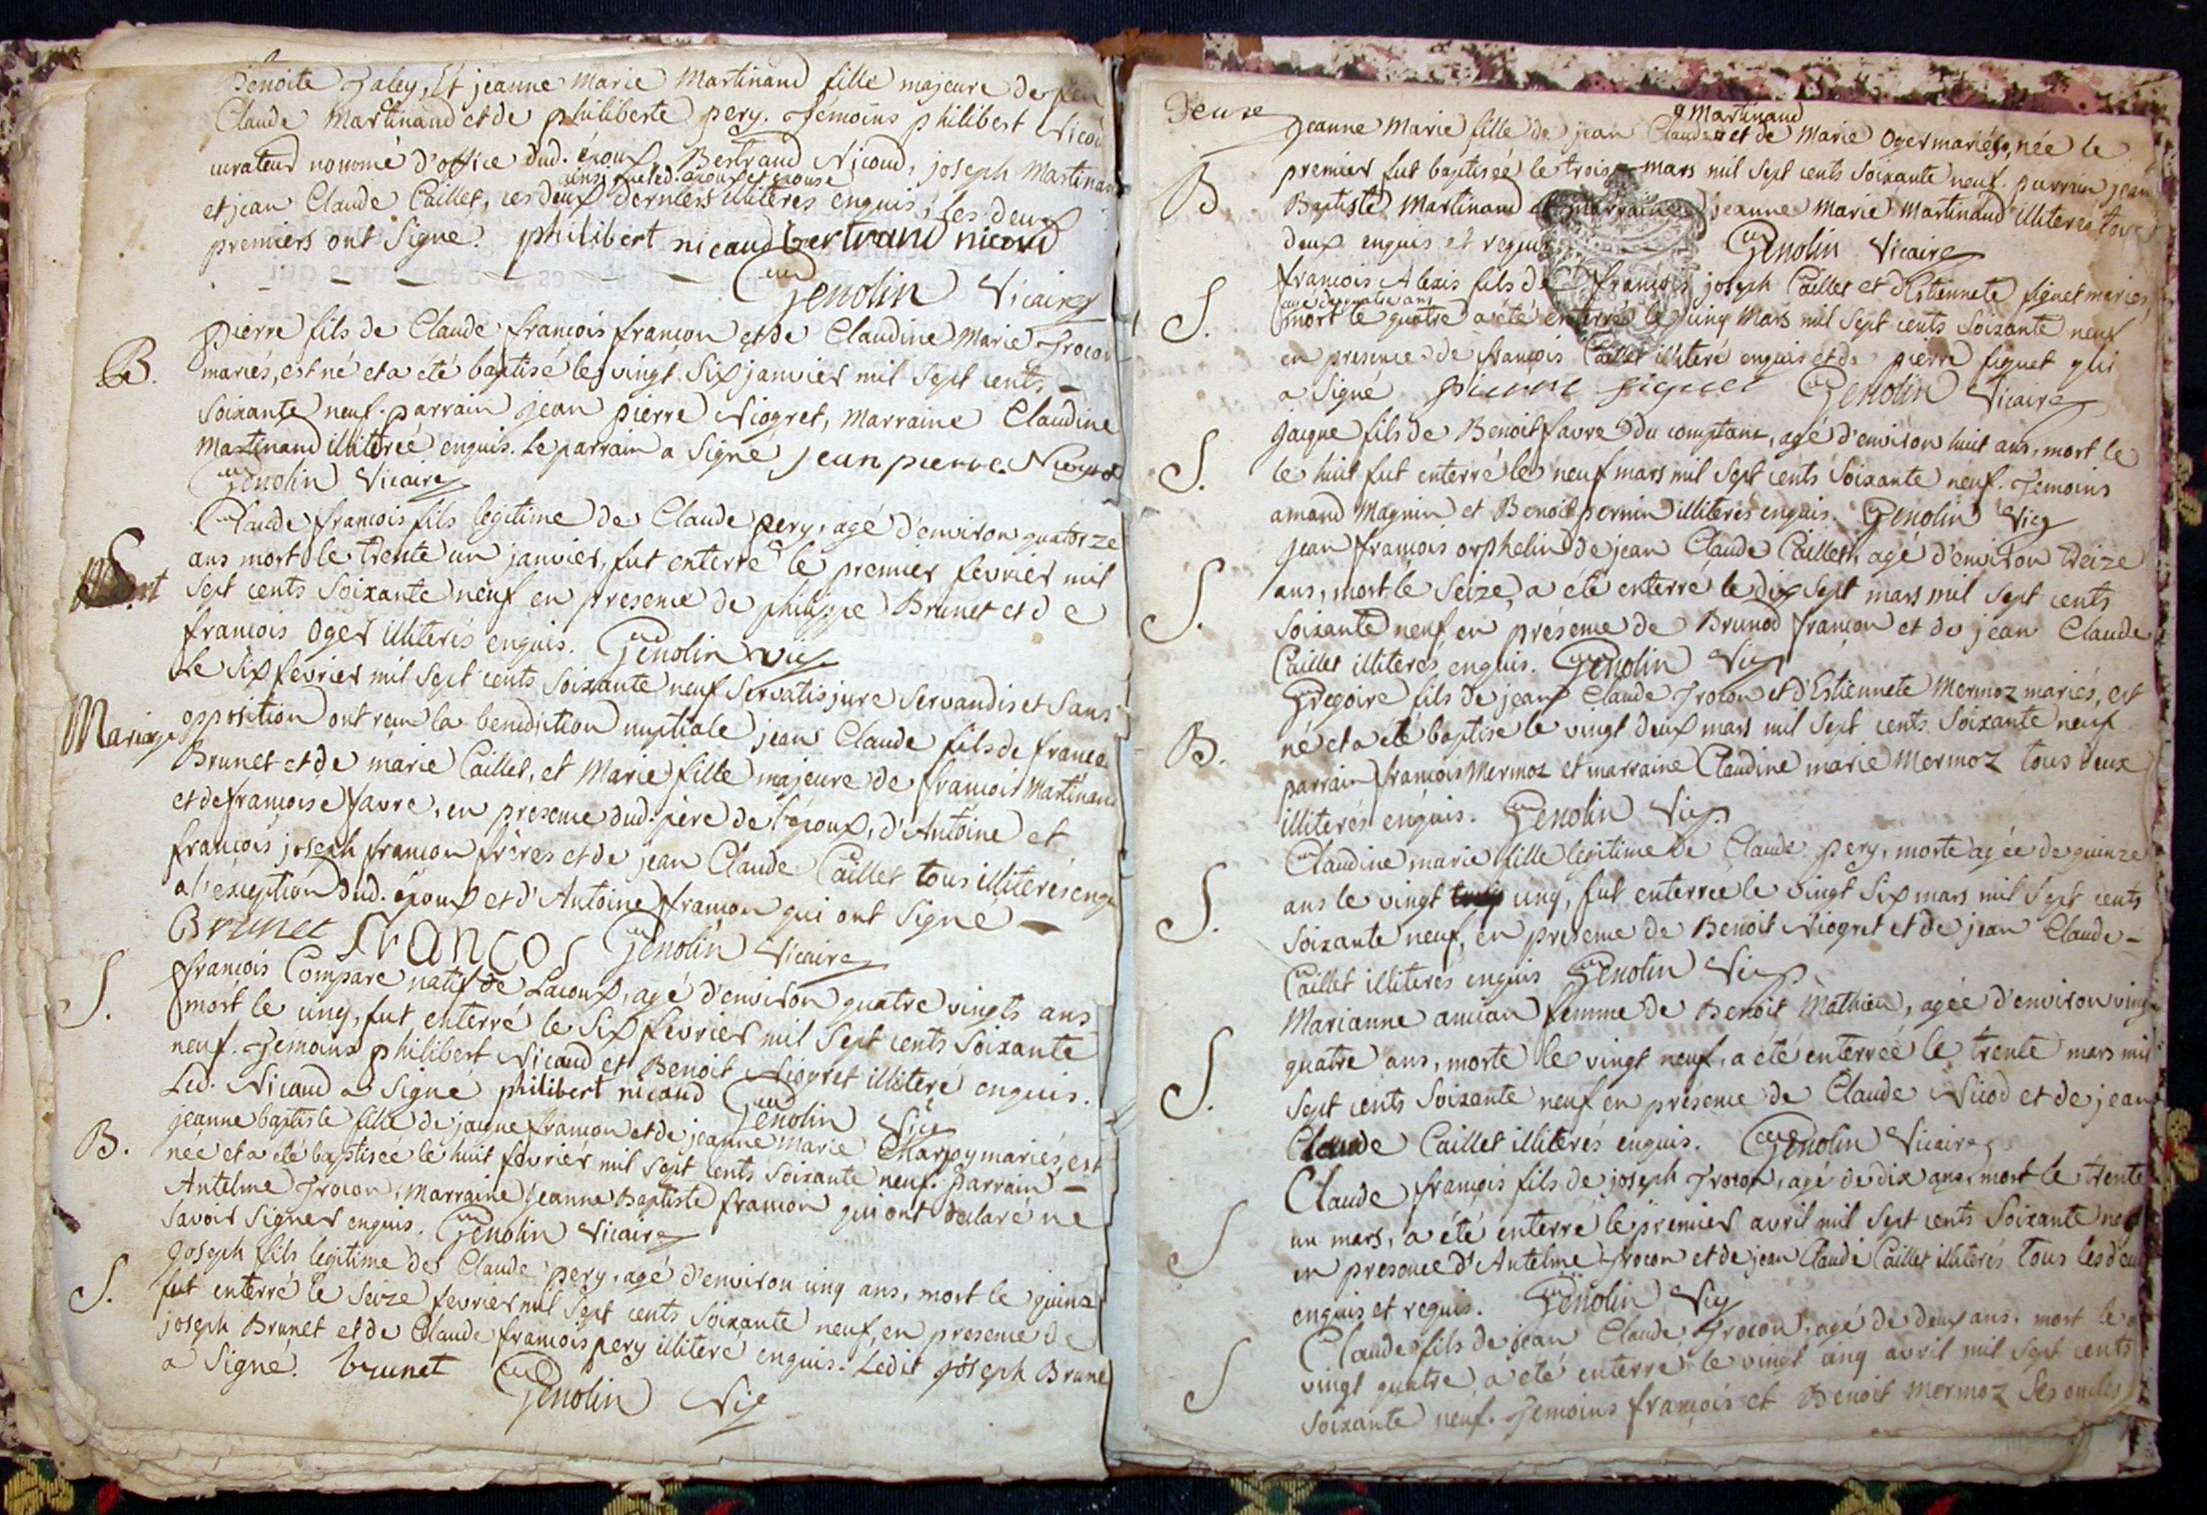 Benoite Jaley, Et jeanne Marie Martinand fille majeure de feu
Claude Martinand et de philiberte pery. Temoins philibert Nicou
curateur nommé d'office dud. époux, Bertrand Nicoud, joseph Martinan
ainsi que led. époux et épouse
et jean Claude Caillet, ces deux derniers illiterés enquis, les deux
premiers ont Signé. philibert nicaud bertrand nicoud
Genolin Vicaire
B.
pierre fils de Claude françois françon et de Claudine Marie Trocon
mariés, est né et a été baptisé le vingt Six janvier mil Sept cents
Soixante neuf. parrain jean pierre Niogret, Marraine Claudine
Martinand illiterée enquis. Le parrain a Signé jean pierre Niogret
Genolin Vicaire
Mort
Claude françois fils legitime de Claude pery, agé d'environ quatorze
ans mort le trente un janvier, fut enterré le premier fevrier mil
Sept cents Soixante neuf en presence de philippe Brunet et de
françois Oger illiterés enquis. Genolin vic
Mariage
Le Six fevrier mil Sept cents Soixante neuf Servatis jure Servandis et Sans
opposition ont reçu la benediction nuptiale jean Claude fils de françois
Brunet et de marie Caillet, et Marie fille majeure de françois Martinand
et de françoise favre, en presence dud. père de l'époux, d'Antoine et
françois joseph françon frères et de jean Claude Caillet tous illiterés enq
a l'exception dud. époux et d'Antoine françon qui ont Signé
Brunet francos Genolin Vicaire
S.
françois Compare natif de Lacoux, agé d'environ quatre vingts ans
mort le cinq, fut enterré le Six fevrier mil Sept cents Soixante
neuf. Temoins philibert Nicaud et Benoit Niogret illiteré enquis.
Led. Nicaud a Signé philibert nicaud Genolin Vic
B.
jeanne baptiste fille de jacque françon et de jeanne Marie Charpy mariés, est
née et a été baptisée le huit fevrier mil Sept cents Soixante neuf. Parrain
Antelme Trocon, Marraine jeanne Baptiste françon qui ont declaré ne
Savoir Signer enquis. Genolin Vicaire
S.
Joseph fils legitime de Claude pery, agé d'environ cinq ans, mort le quinze
fut enterré le Seize fevrier mil Sept cents Soixante neuf, en presence de
joseph Brunet et de Claude françois pery illiteré enquis. Ledit joseph Brune
a Signé. brunet Genolin Vic
Deuze
q Martinand
Jeanne Marie fille de jean Claude et de Marie Oger mariés, née le
B
premier fut baptiseé le trois mars mil Sept cents Soixante neuf. parrain jean
Baptiste Martinand et marraine jeanne Marie Martinand illiterés tous
deux enquis et requis Genolin Vicaire
S.
françois Alexis fils de françois joseph Caillet et d'Estiennete figuet mariés,
agé de quatre ans
mort le quatre a été enterré le cinq Mars mil Sept cents Soixante neuf
en presence de françois Caillet illiteré enquis et de pierre figuet qui
a Signé pierre figuet Genolin Vicaire
S.
Jacque fils de Benoit favre du comptant, agé d'environ huit ans, mort le
le huit fut enterré le neuf mars mil Sept cents Soixante neuf. Temoins
amand Magnin et Benoit pernin illiterés enquis. Genolin Vic
S.
Jean françois orphelin de jean Claude Caillet, agé d'environ treize
ans, mort le Seize, a été enterré le dix Sept mars mil Sept cents
Soixante neuf en présence de Brunod françon et de jean Claude
Caillet illiterés enquis. Genolin Vic
B.
Gregoire fils de jean Claude Trocon et d'Estiennete Mermoz mariés, est
né et a été baptisé le vingt deux mars mil Sept cents Soixante neuf
parrain françois Mermoz et marraine Claudine marie Mermoz tous deux
illiterés enquis. Genolin Vic
S.
Claudine marie fille legitime de Claude pery, morte agée de quinze
ans le vingt cinq, fut enterrée le vingt Six mars mil Sept cents
Soixante neuf, en presence de Benoit Niogret et de jean Claude
Caillet illiterés enquis Genolin Vic
S.
Marianne amian femme de Benoit Mathieu, agée d'environ vingt
quatre ans, morte le vingt neuf, a été enterrée le trente mars mil
Sept cents Soixante neuf en présence de Claude Nicod et de jean
Claude Caillet illiterés enquis. Genolin Vicaire
S
Claude françois fils de joseph Trocon, agé de dix ans, mort le trente
un mars, a été enterré le premier avril mil Sept cents Soixante neuf
en presence d'Antelme Trocon et de jean Claude Caillet illiterés tous les deux
enquis et requis. Genolin Vic
S
Claude fils de jean Claude Trocon, agé de deux ans, mort le
vingt quatre a été enterré le vingt cinq avril mil Sept cents
Soixante neuf. Temoins françois et Benoit Mermoz Ses oncles